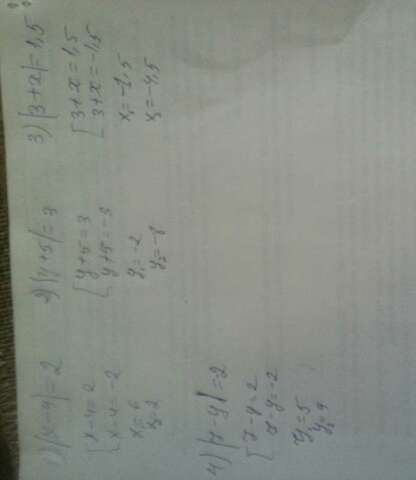 1) |x-4|=2
[x-4=2
x-4=-2
x₁=6
x₂=2
2) |y+5|=3
[y+5=3
y+5=-3
y₁=-2
y₂=-8
3) |3+x|=1,5
[3+x=1,5
3+x=-1,5
x₁=-1,5
x₂=-4,5
4) |7-y|=2
[7-y=2
7-y=-2
y₁=5
y₂=9